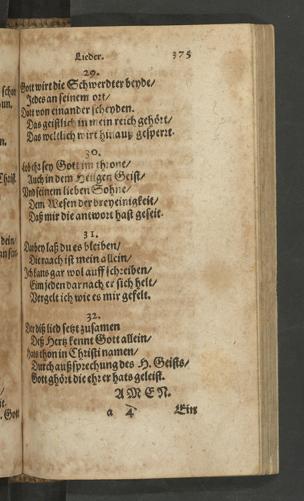 Lieder. 375
29.
Gott wirt die Schwerdter beyde/
Jedes an seinem ort/
Dort von einander scheyden.
Das geistlich in mein reich gehört/
Das weltlich wirt hinauß gesperrt.
30.
Lob ehr sey Gott im throne/
Auch in dem Heiligen Geist/
Vnd seinem lieben Sohne/
Dem Wesen der dreyeinigkeit/
Daß mir die antwort hast geseit.
31.
Darbey laß du es bleiben/
Die raach ist mein allein/
Ich kans gar wol auff schreiben/
Eim jeden darnach er sich helt/
Vergelt ich wie es mir gefelt.
32.
Der diß lied setzt zusamen
Deß Hertz kennt Gott allein/
Hats thon in Christi namen/
Durch außsprechung des H. Geists/
Gott ghört die ehr er hats geleist.
AMEN.
a 4 Ein